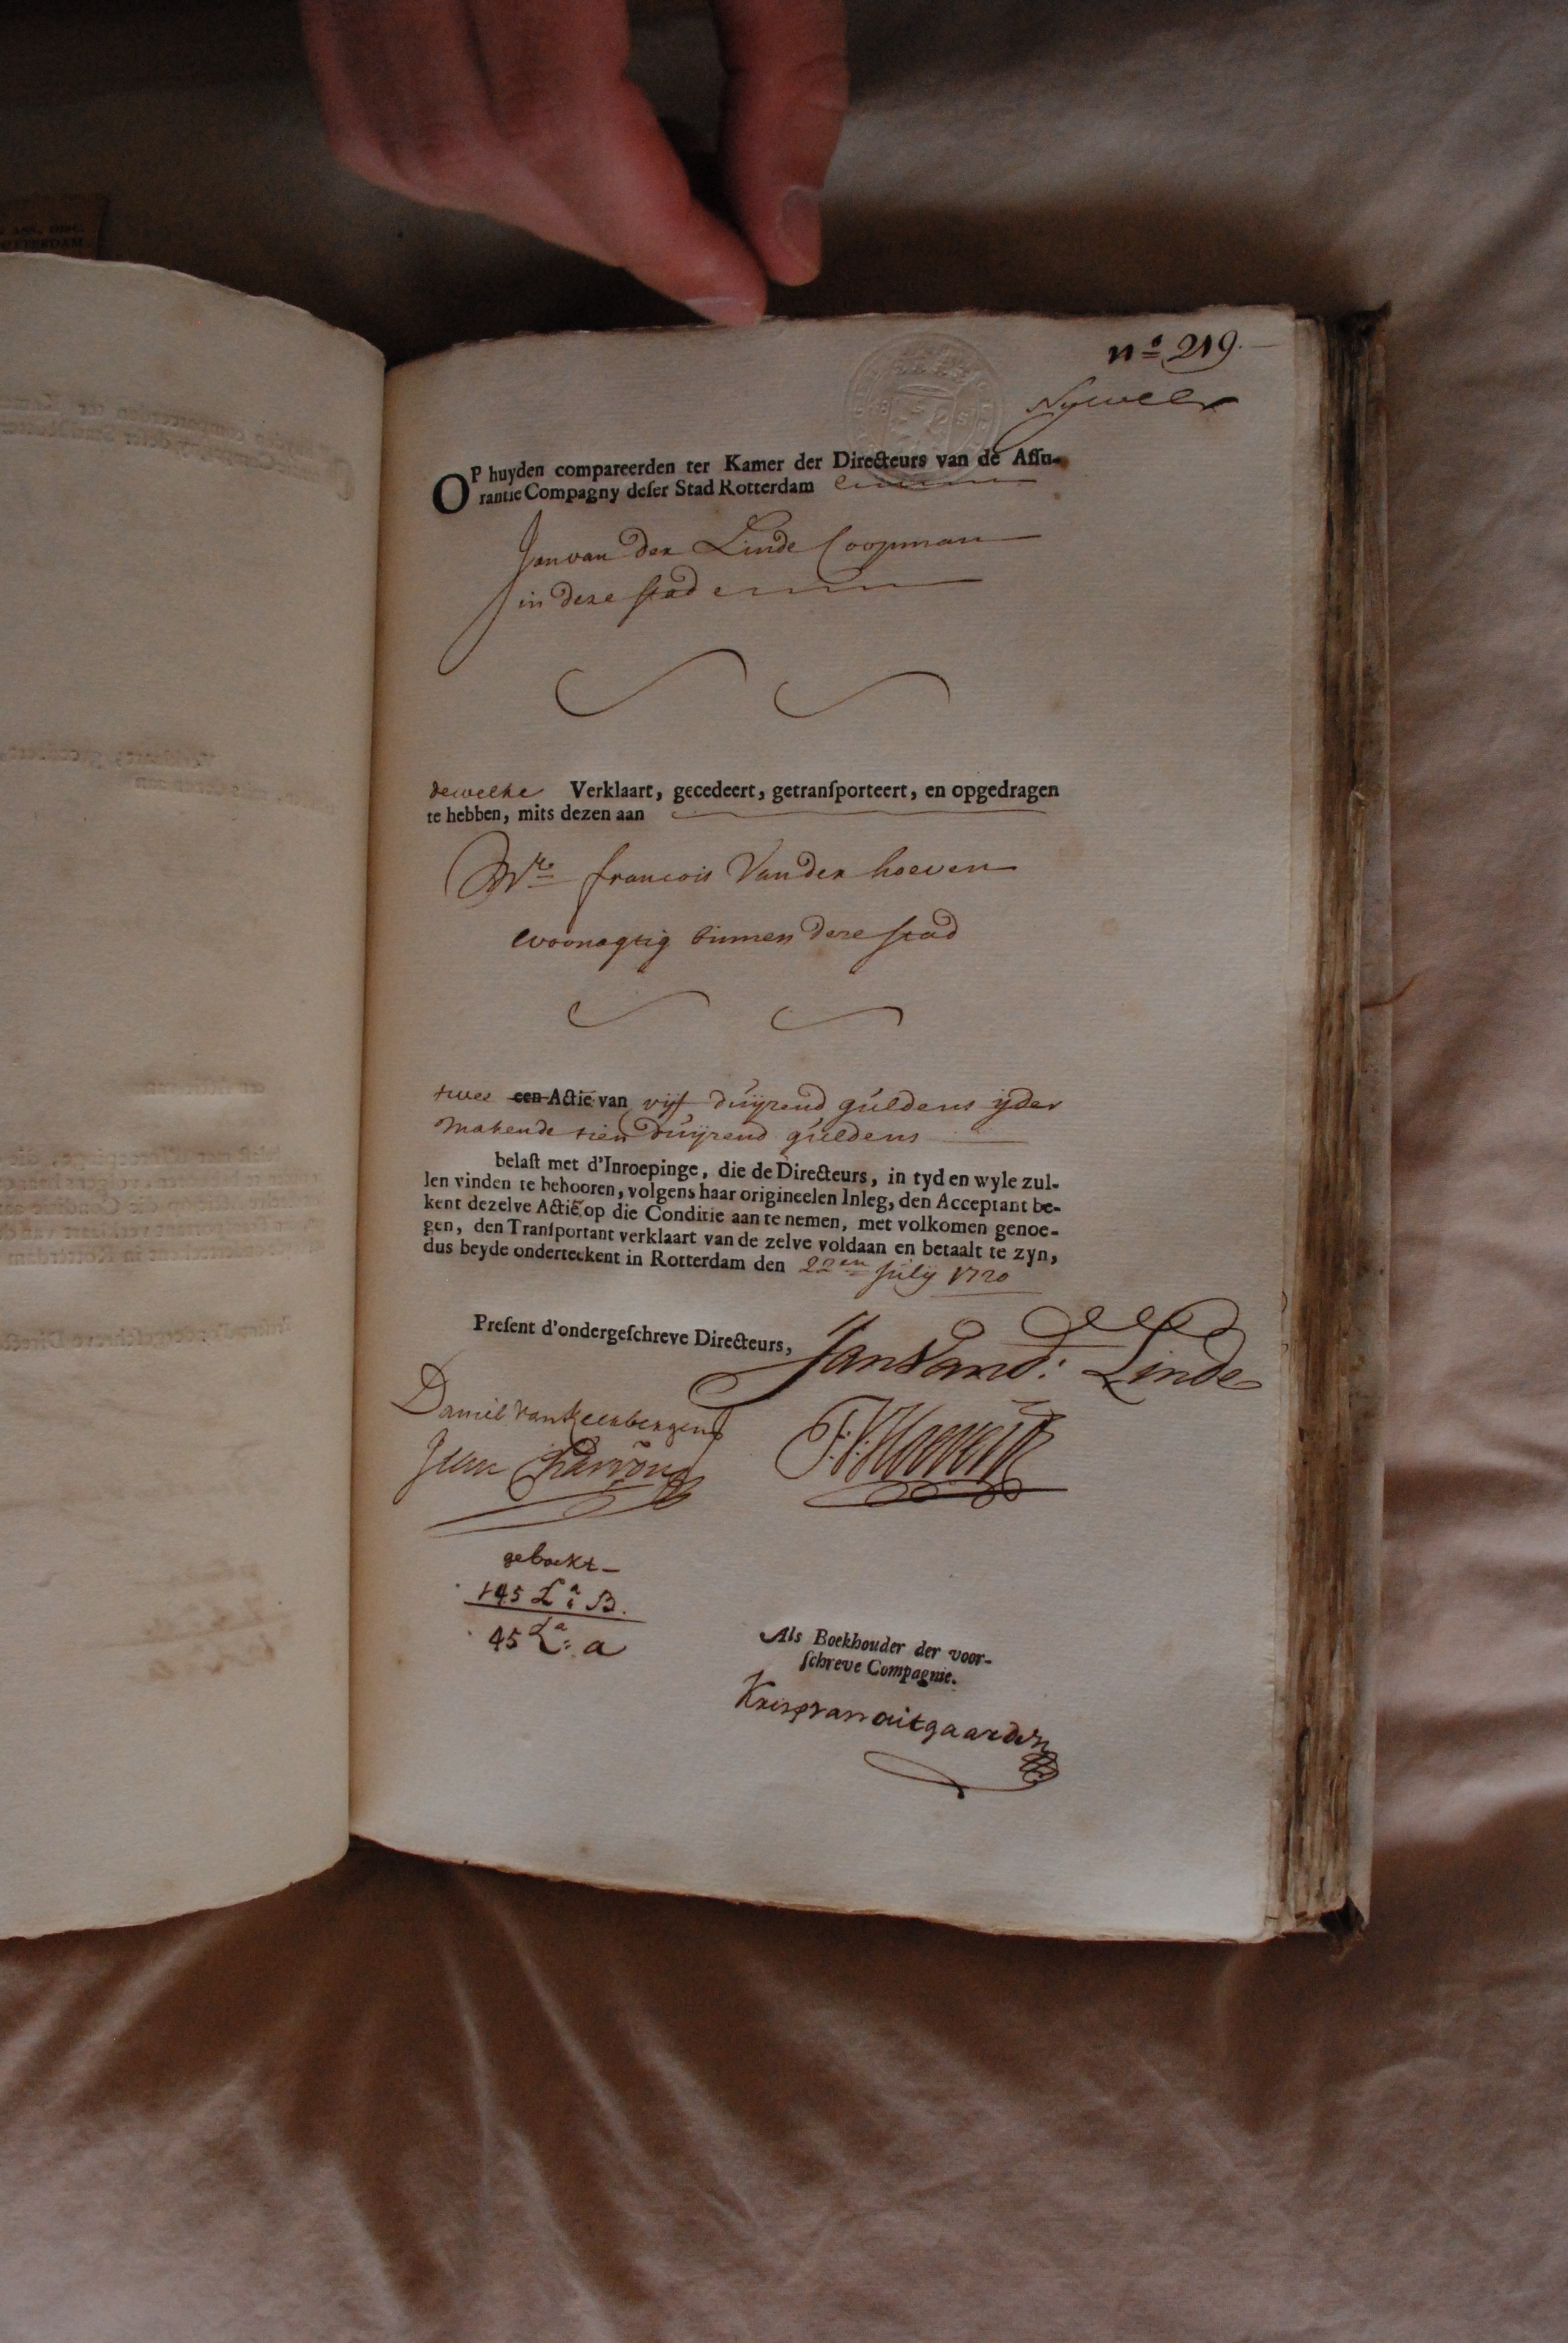 nº 219.
OP huyden compareerden ter Kamer der Directeurs van de Aſſu-
rantie Compagny deſer Stad Rotterdam
Jan van der Linde Coopman
in deze stad
dewelke Verklaart, gecedeert, getranſporteert, en opgedragen
te hebben, mits dezen aan
Mr. francois Van der hoeven
woonagtig binnen deze stad
twee een Actie van vijf duijzend guldens ijder
makende tien duijzend guldens
belaſt met d'Inroepinge, die de Directeurs, in tyd en wyle zul-
len vinden te behooren, volgens haar origineelen Inleg, den Acceptant be-
kent dezelve Actie, op die Conditie aan te nemen, met volkomen genoe-
gen, den Tranſportant verklaart van de zelve voldaan en betaalt te zyn,
dus beyde onderteekent in Rotterdam den 22en July 1720
Preſent d'ondergeſchreve Directeurs,
Jan Vand: Linde
Daniel van Keerbergen
F:V:Hoeven
Jean
geboekt
145 La B.
45 La: a
Als Boekhouder der voor-
ſchreve Compagnie.
Krisp van outgaarden